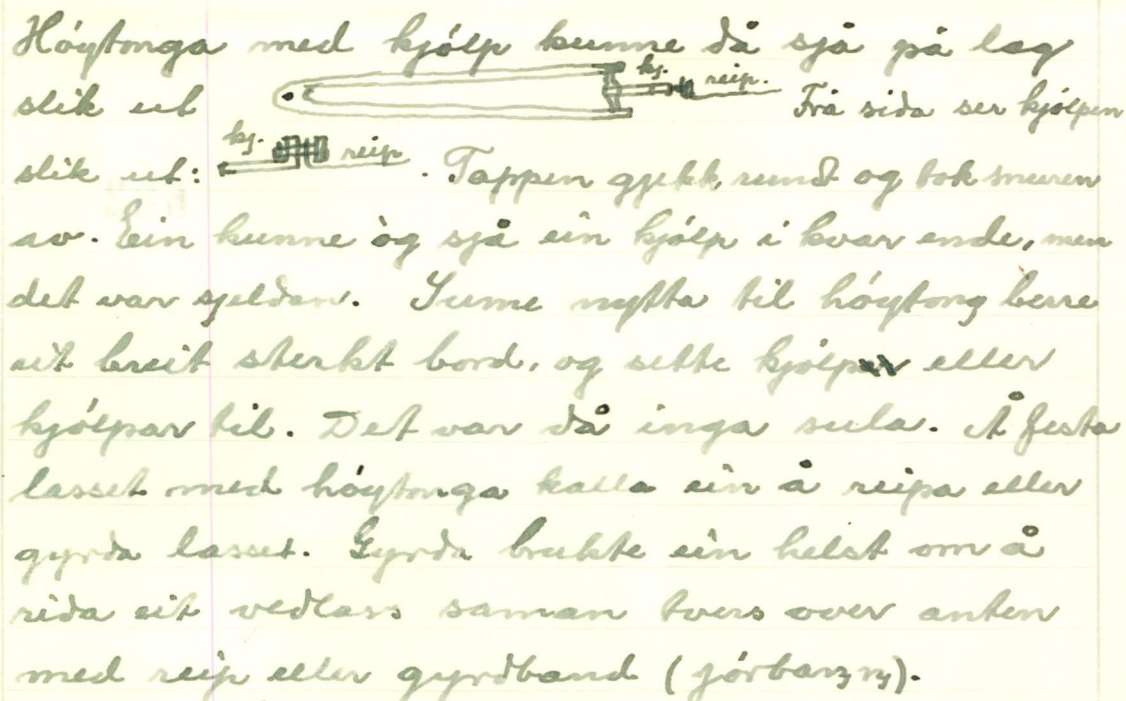 Hóytonga med kjólp kunne då sjå på lag
slik ut kj. reip. Frå sida ser kjólpen
slik ut: kj. reip. Tappen gjekk rundt og tok snuren
av. Ein kunne òg sjå ein kjólp i kvar ende, men
det var sjeldan. Sume nytta til hóytong berre
eit breit sterkt bord, og sette kjólp eller
kjólpar til. Det var då inga sula. Å festa
lasset med hóytonga kalla ein å reipa eller
gyrda lasset. Gyrda brukte ein helst om å
rida eit vedlass saman tvers over anten
med reip eller gyrdband (